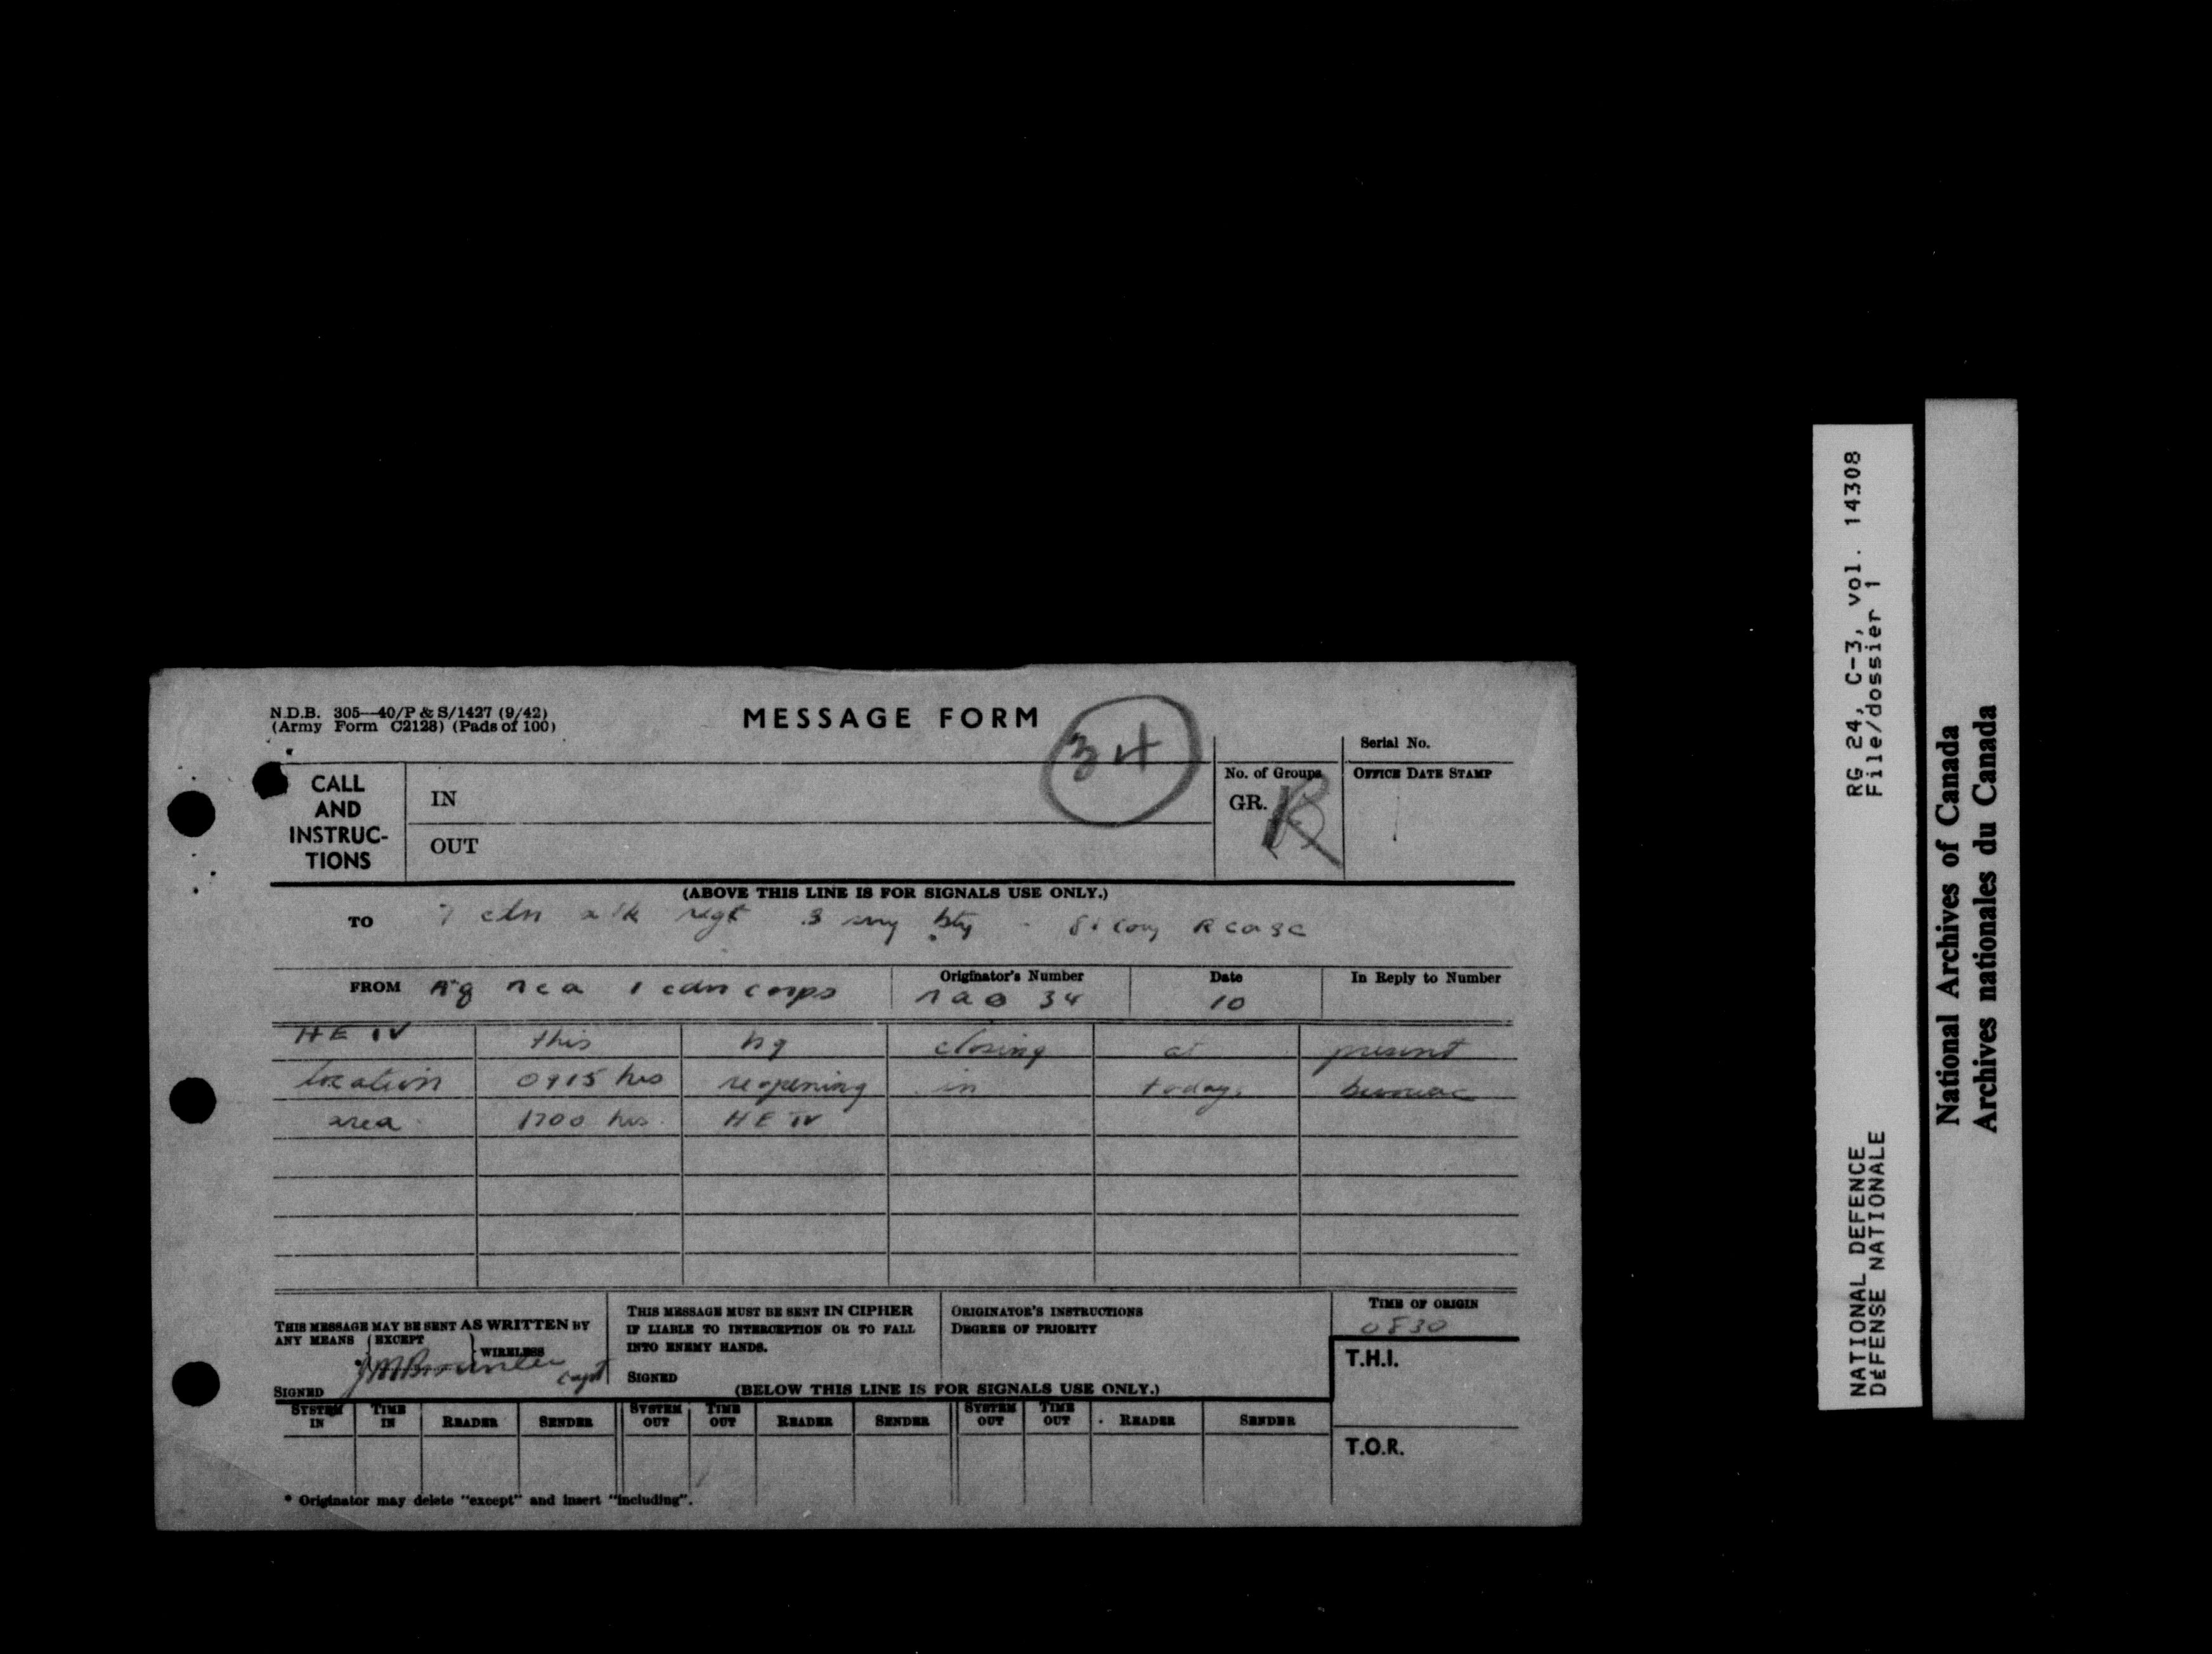 N.D.B. 305—40/P & S/1427 (9/42)
(Army Form C2128) (Pads of 100)
MESSAGE FORM
34
Serial No.
CALL AND INSTRUC-TIONS
IN
OUT
No. of Groups
GR.
OFFICE DATE STAMP
(ABOVE THIS LINE IS FOR SIGNALS USE ONLY.)
TO 7 cdn a/tk regt 3 svy bty - 81 coy RCASC
FROM hq rca 1 cdn corps
Originator's Number
rao 34
Date
10
In Reply to Number
HE IV this hq closing at present
location 0915 hrs reopening in today. bivouac
area 1700 hrs. HE IV
THIS MESSAGE MAY BE SENT AS WRITTEN BY
ANY MEANS EXCEPT WIRELESS
SIGNED Capt
THIS MESSAGE MUST BE SENT IN CIPHER
IF LIABLE TO INTERCEPTION OR TO FALL
INTO ENEMY HANDS.
SIGNED
ORIGINATOR'S INSTRUCTIONS
DEGREE OF PRIORITY
TIME OF ORIGIN
0830
T.H.I.
(BELOW THIS LINE IS FOR SIGNALS USE ONLY.)
SYSTEM IN TIME IN READER SENDER SYSTEM OUT TIME OUT READER SENDER SYSTEM OUT TIME OUT READER SENDER
T.O.R.
* Originator may delete "except" and insert "including".
RG 24, C-3, vol. 14308
File/dossier 1
NATIONAL DEFENCE
DÉFENSE NATIONALE
National Archives of Canada
Archives nationales du Canada